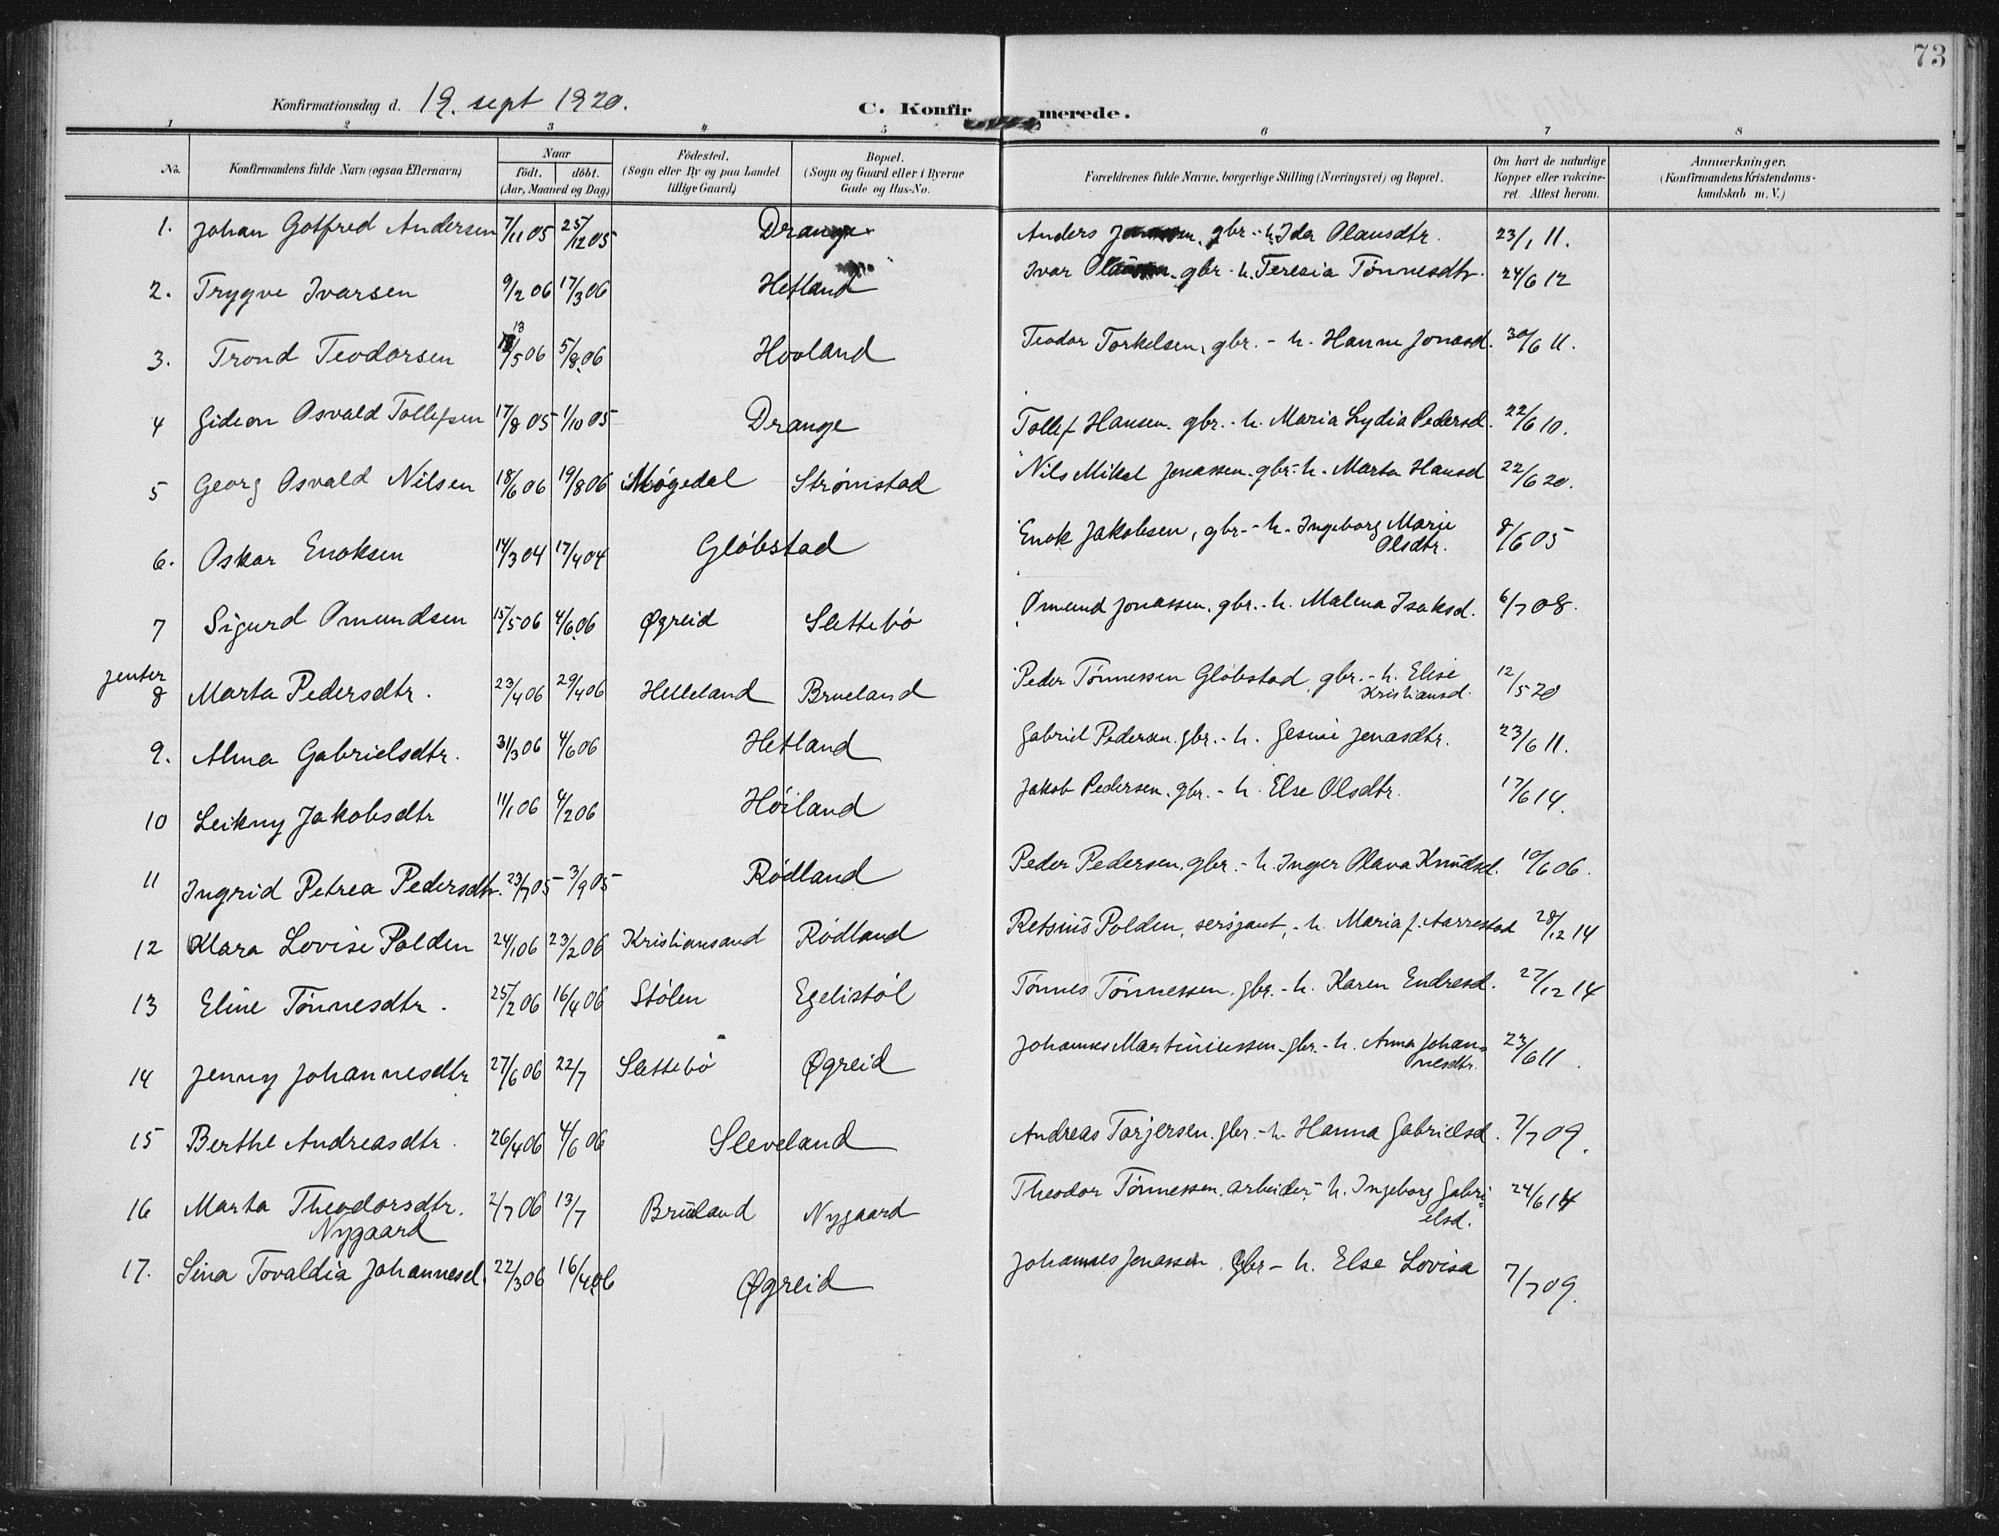 73
Konfirmationsdag d. 19. sept 1920.
C. Konfirmerede.
1 2 3 4 5 6 7 8
No. Konfirmandens fulde Navn (ogsaa Efternavn) Naar født. døbt. (Aar, Maaned og Dag) Fødested. (Sogn eller By og paa Landet tillige Gaard) Bopæl. (Sogn og Gaard eller i Byerne Gade og Hus-No. Forældrenes fulde Navne, borgerlige Stilling (Næringsvei) og Bopæl. Om havt de naturlige Kopper eller vakcineret. Attest herom. Anmærkninger. (Konfirmandens Kristendomskundskab m. V.)
1. Johan Gotfred Andersen 7/11 05 25/12 05 Drange Anders gbr. - h. Ida Olausdtr. 23/1 11.
2. Trygve Ivarsen 9/2 06 17/3 06 Hetland Ivar gbr. h. Teresia Tønnesdtr. 24/6 12
3. Trond Teodorsen 13/5 06 5/8 06 Hovland Teodor Torkelsen, gbr. - h. Hanne Jonasd. 30/6 11.
4 Gideon Osvald Tollefsen 17/8 05 1/10 05 Drange Tollef Hansen. gbr. - h. Maria Lydia Pedersd. 22/6 10.
5 Georg Osvald Nilsen 18/6 06 19/8 06 Møgedal Strømstad Nils Mikal Jonassen. gbr. - h. Marta Hansd 22/6 20.
6. Oskar Enoksen 14/3 04 17/4 04 Gløbstad Enok Jakobsen, gbr. - h. Ingeborg Marie Olsdtr. 8/6 05
7 Sigurd Omundsen 15/5 06 4/6 06 Øgreid Slettebø Omund Jonassen. gbr. - h. Malena Isaksd. 6/7 08.
jenter
8 Marta Pedersdtr. 23/4 06 29/4 06 Helleland Brueland Peder Tønnessen Gløbstad, gbr. - h. Elise Kristiansd. 12/5 20
9. Alma Gabrielsdtr. 31/3 06 4/6 06 Hetland Gabriel Pedersen. gbr. - h. Gesine Jonasdtr. 23/6 11.
10 Leikny Jakobsdtr 11/1 06 4/2 06 Høiland Jakob Pedersen. gbr. - h. Else Olsdtr. 17/6 14.
11 Ingrid Petrea Pedersdtr. 23/7 05 3/9 05 Rødland Peder Pedersen. gbr. - h. Inger Olava Knudsd. 10/6 06.
12 Klara Lovise Polden 24/1 06 23/2 06 Kristiansand Rødland Retsius Polden, sersjant, - h. Maria f. Aarrestad 28/12 14
13 Eline Tønnesdtr. 25/2 06 16/4 06 Stølen Egelistøl Tønnes Tønnessen. gbr. - h. Karen Endresd. 27/12 14
14 Jenny Johannesdtr 27/6 06 22/7 Slettebø Øgreid Johannes Martiniussen. gbr - h. Anna Johannesdtr. 23/6 11.
15 Berthe Andreasdtr. 26/4 06 4/6 06 Sleveland Andreas Torjersen. gbr. - h. Hanna Gabrielsd. 7/7 09.
16 Marta Theodorsdtr. Nygaard 2/7 06 13/7 Bruland Nygaard Theodor Tønnessen. arbeider - h. Ingeborg Gabrielsd. 24/6 14
17. Sina Tovaldia Johannesd. 22/3 06 16/4 06 Øgreid Johannes Jonassen. Gbr - h. Else Lovisa 7/7 09.